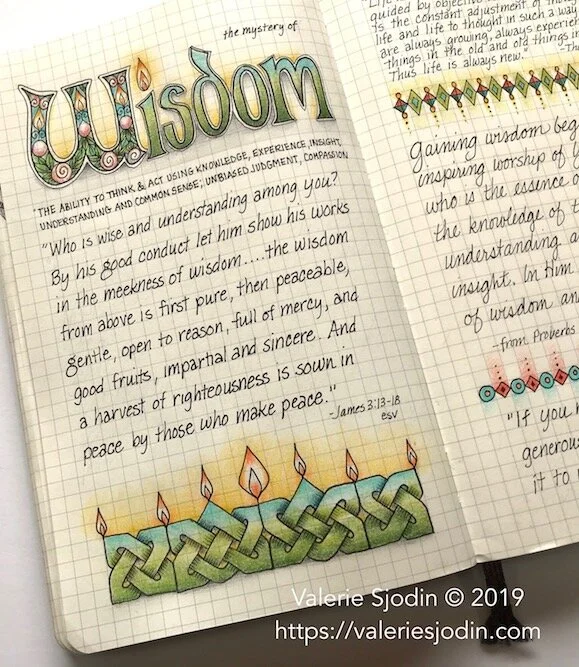 the mystery of
Wisdom
THE ABILITY TO THINK & ACT USING KNOWLEDGE, EXPERIENCE, INSIGHT,
UNDERSTANDING AND COMMON SENSE; UNBIASED JUDGMENT, COMPASSION
"Who is wise and understanding among you?
By his good conduct let him show his works
in the meekness of wisdom....the wisdom
from above is first pure, then peaceable,
gentle, open to reason, full of mercy, and
good fruits, impartial and sincere. And
a harvest of righteousness is sown in
peace by those who make peace."
-James 3:13-18
esv
guided by objective
is the constant adjustment of
life and life to thought in such a way
are always growing, always
things in the old and old things in
Thus life is always new."
Gaining wisdom
inspiring worship of
who is the essence o
the knowledge of
understanding
insight. In Him
of wisdom an
-from Proverbs
"If you
generou
it to
Valerie Sjodin © 2019
https://valeriesjodin.com